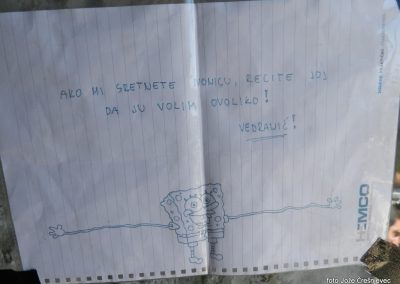 AKO MI SRETNETE IVONICU, RECITE JOJ
DA JU VOLIM OVOLIKO!
VEDRANIĆ!
HEMCO
foto Jože Črešnjevec